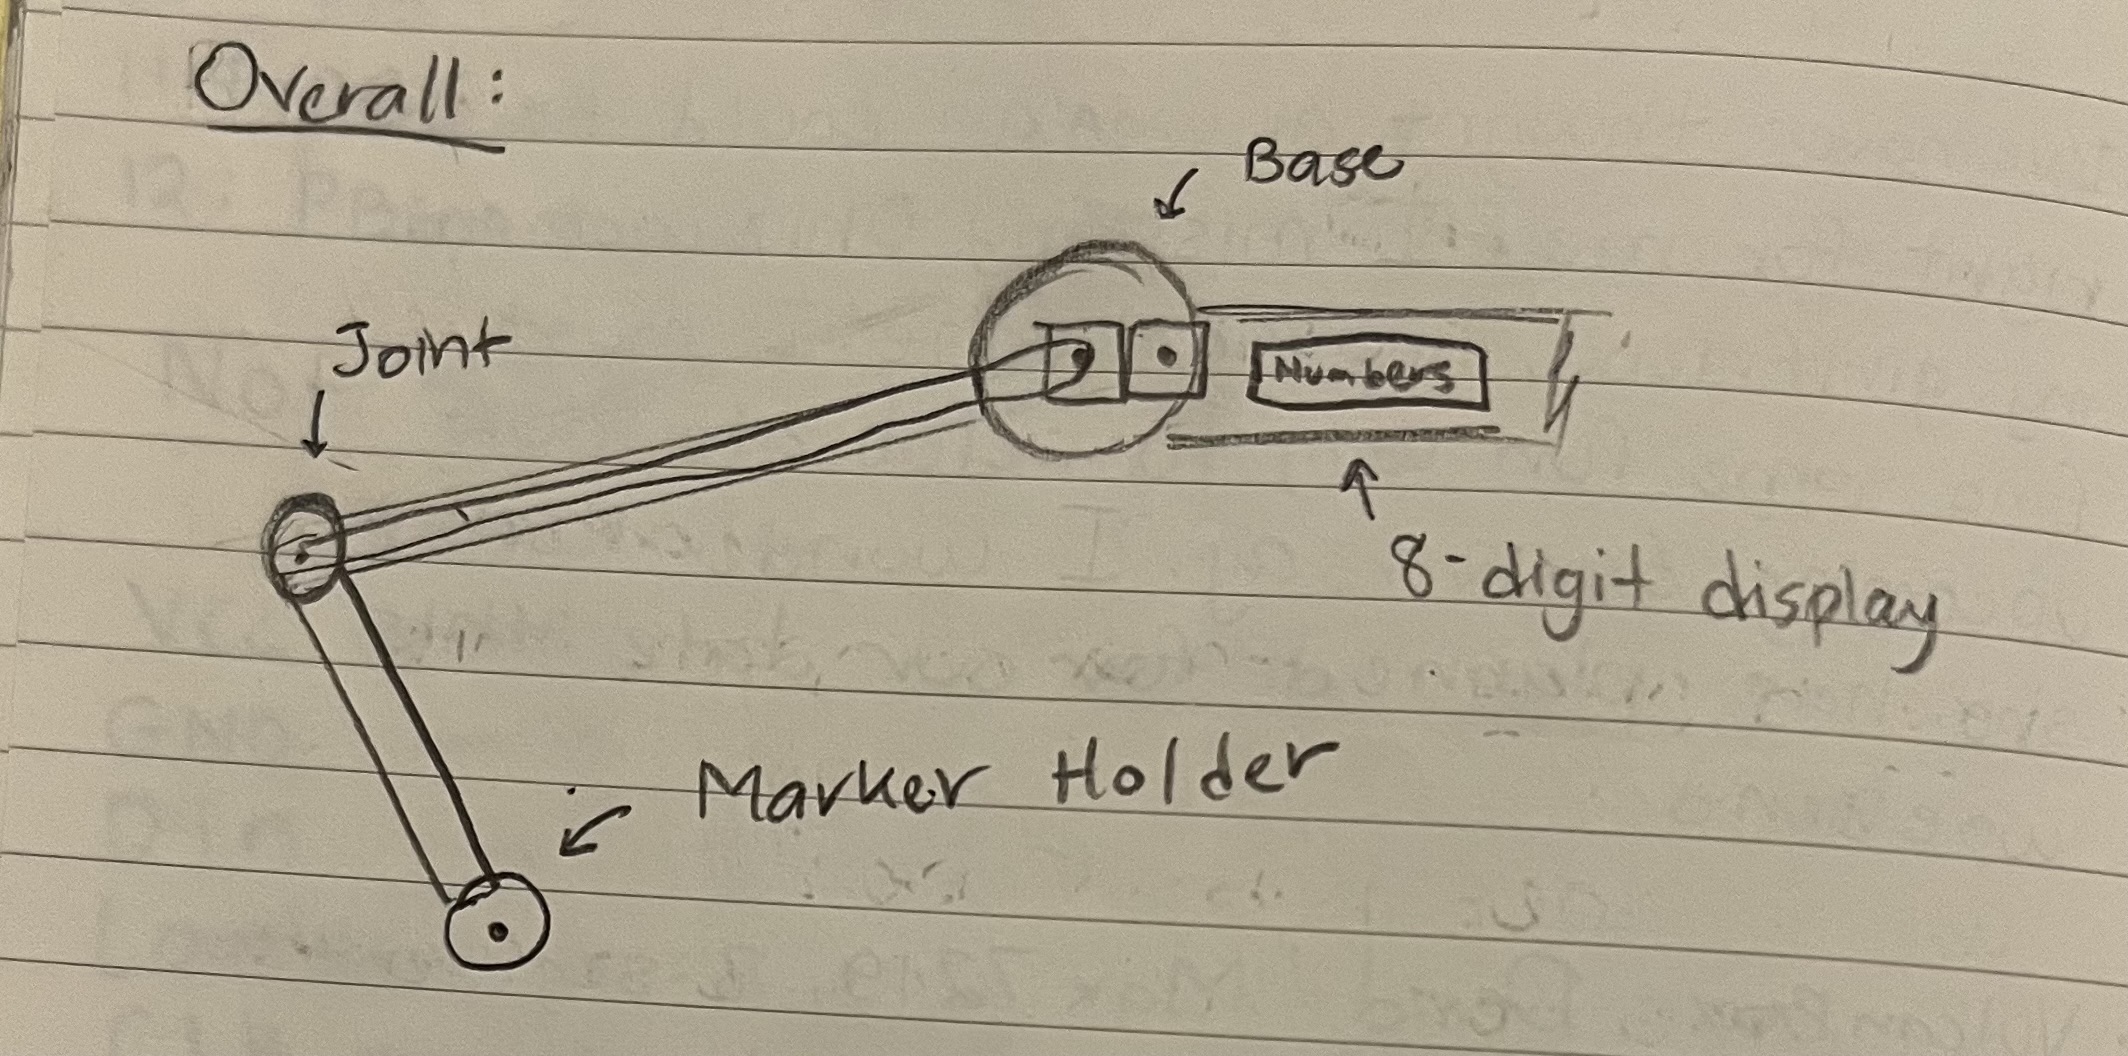 Overall:
Base
Joint
Numbers
8-digit display
Marker Holder